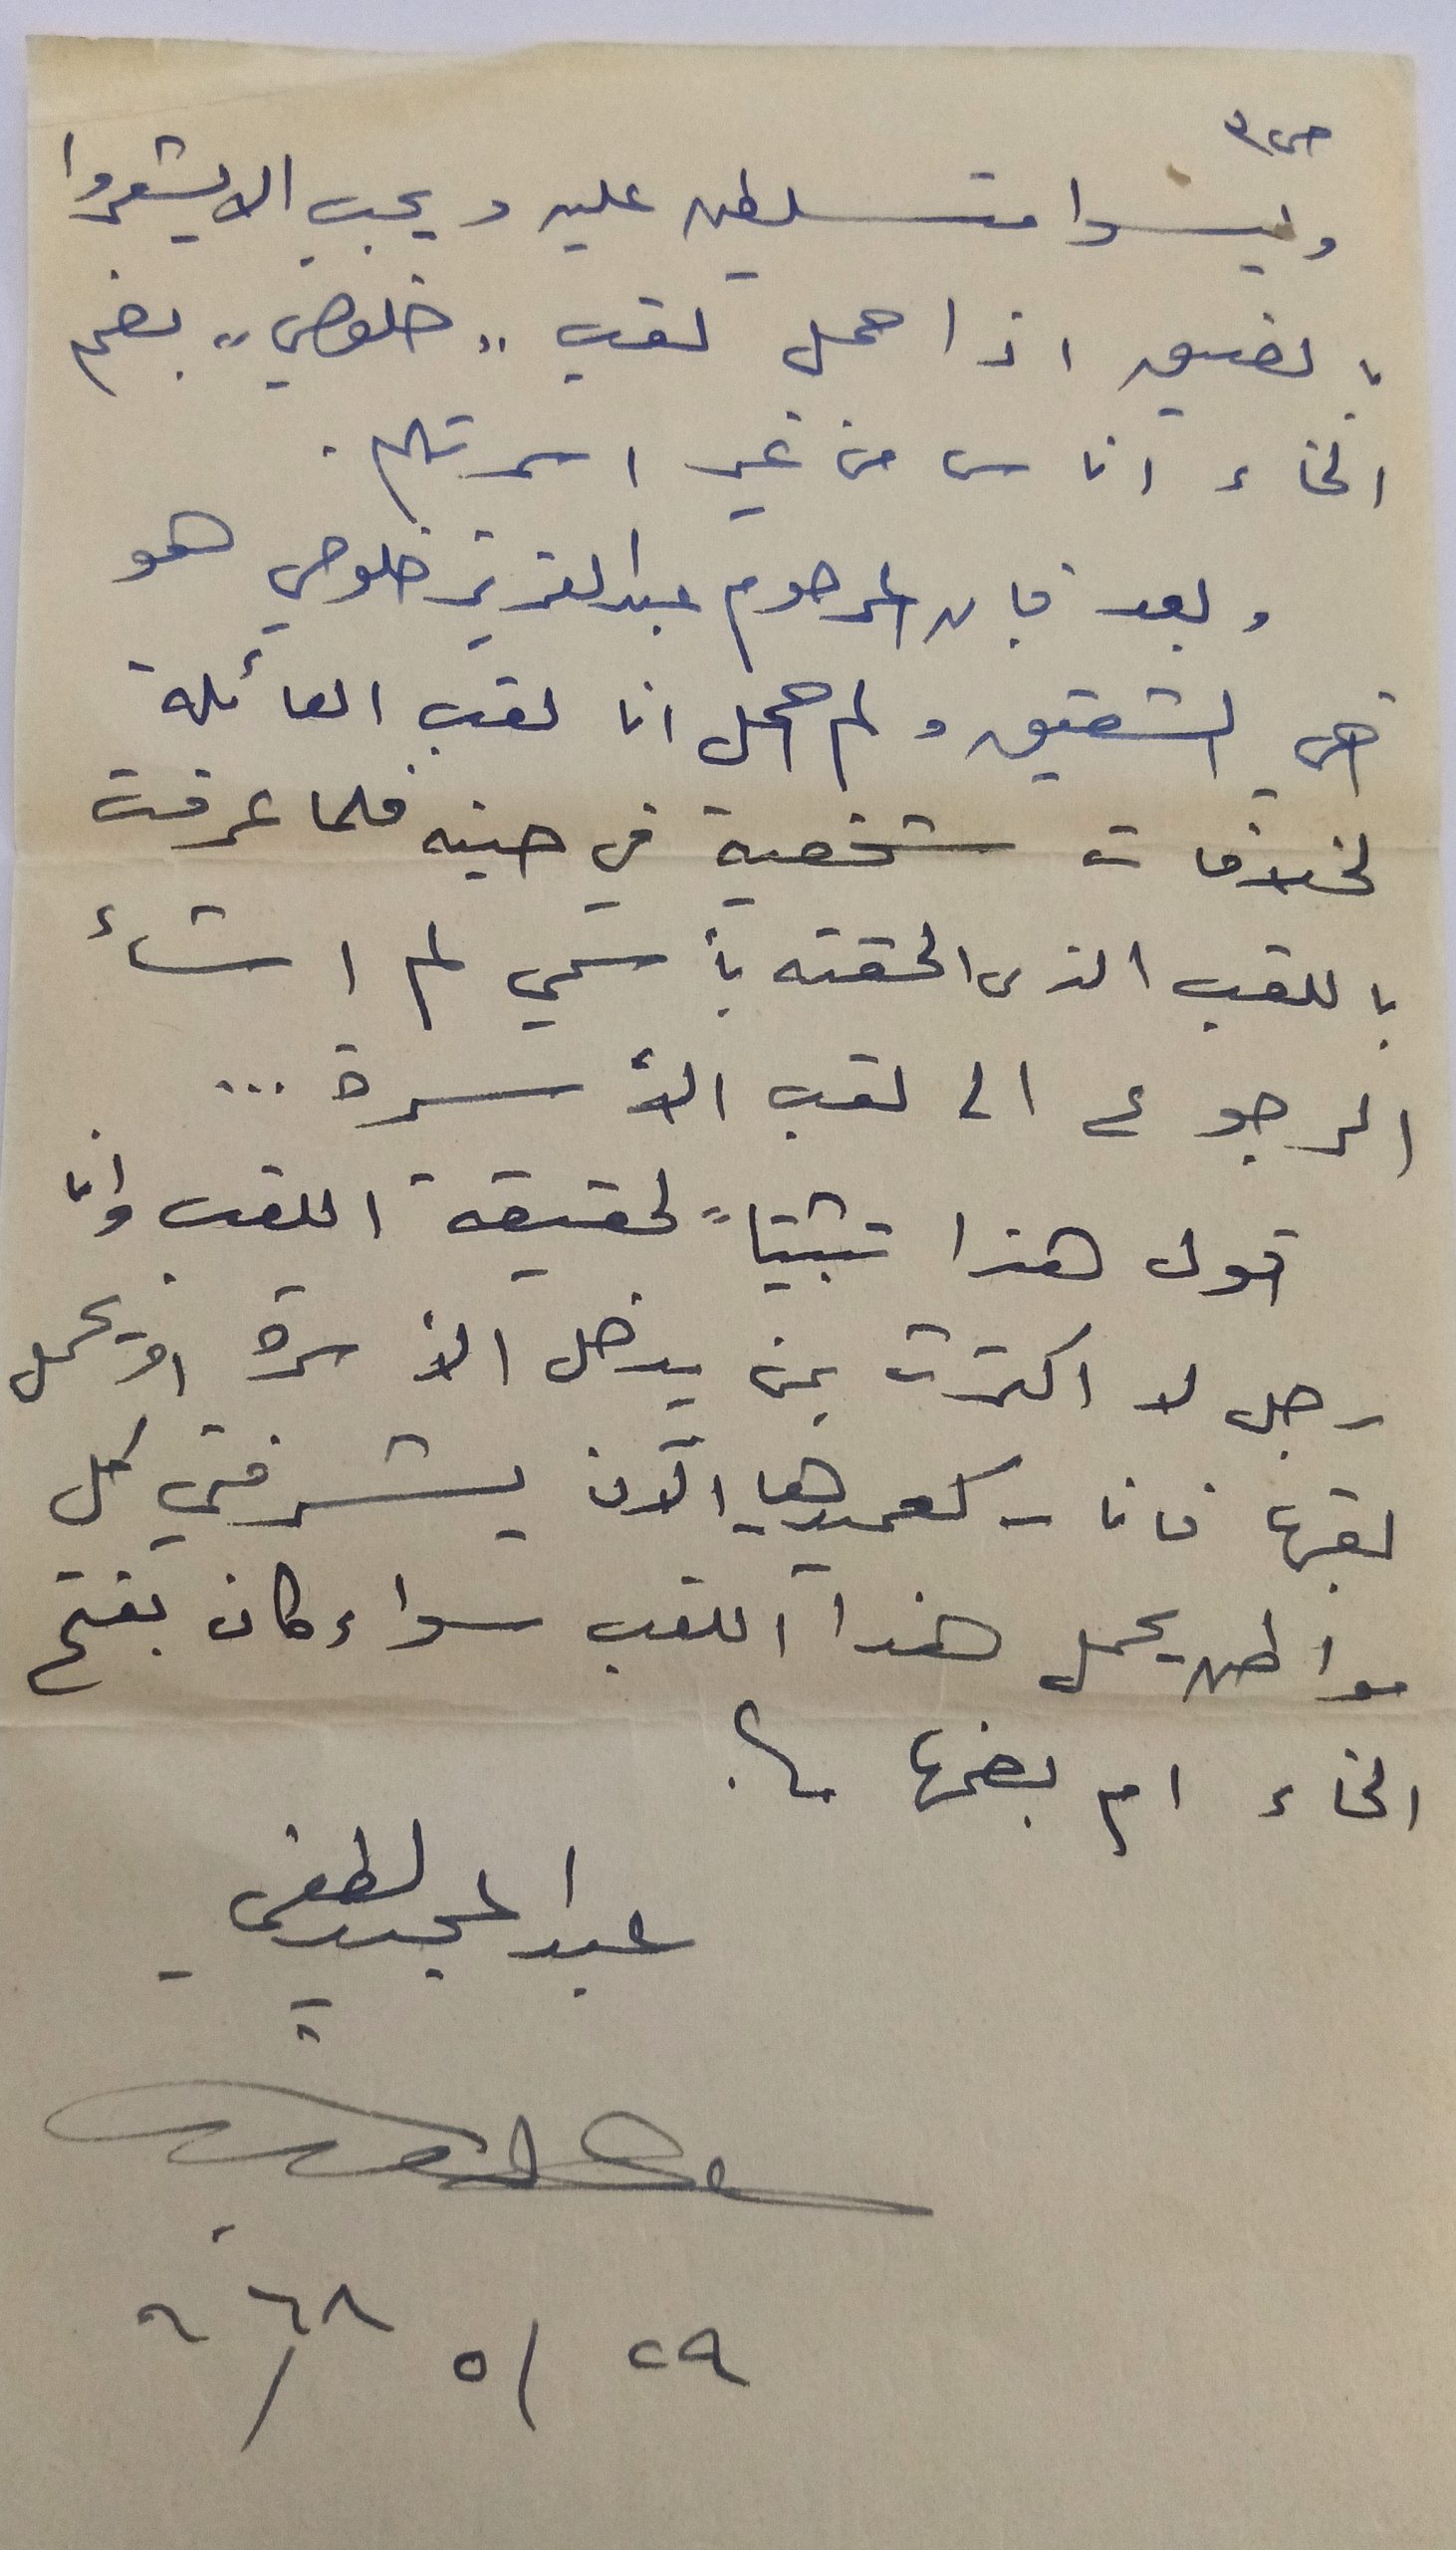 ص٣
وليسوا متسلطين عليه ويجب الا يشعروا
بالضيق اذا حمل لقب "خلوصي" بضم
الخاء اناس من غير اسرتهم.
وبعد فان المرحوم عبدالعزيز خلوصي هو
اخي الشقيق ولم احمل انا لقب العائلة
لخلافات شخصية في حينه فلما عرفت
باللقب الذي الحقته بأسمي لم اشأ
الرجوع الى لقب الأسرة ...
اقول هذا تثبيتاً لحقيقة اللقب وانا
رجل لا اكترث بمن يدخل الأسرة او يحمل
لقبها فانا - كعميدها الآن يشرفني كل
مواطن يحمل هذا اللقب سواء كان بفتح
الخاء ام بضمها ؟.
عبدالمجيد لطفي
٢٩ / ٥ / ٩٦٨